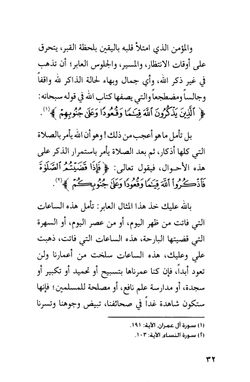 والمؤمن الذي امتلأ قلبه باليقين بلحظة القبر، يتحرق
على أوقات الانتظار، والمسير، والجلوس العابر؛ أن تذهب
في غير ذكر الله، وأي جمال وبهاء لحالة الذاكر لله واقفاً
وجالساً ومضطجعاً والتي يصفها كتاب الله في قوله سبحانه:
﴿ ٱلَّذِينَ يَذْكُرُونَ ٱللَّهَ قِيَٰمًا وَقُعُودًا وَعَلَىٰ جُنُوبِهِمْ ﴾(١).
بل تأمل ما هو أعجب من ذلك! وهو أن الله يأمر بالصلاة
التي كلها أذكار، ثم بعد الصلاة يأمر باستمرار الذكر على
هذه الأحوال، فيقول تعالى: ﴿ فَإِذَا قَضَيْتُمُ ٱلصَّلَوٰةَ
فَٱذْكُرُوا۟ ٱللَّهَ قِيَٰمًا وَقُعُودًا وَعَلَىٰ جُنُوبِكُمْ ﴾(٢).
بالله عليك خذ هذا المثال العابر: تأمل هذه الساعات
التي فاتت من ظهر اليوم، أو من عصر اليوم، أو السهرة
التي قضيتها البارحة، هذه الساعات التي فاتت، ذهبت
علي وعليك، هذه الساعات سلخت من أعمارنا ولن
تعود أبداً، فإن كنا عمرناها بتسبيح أو تحميد أو تكبير أو
سجدة، أو مدارسة علم نافع، أو مصلحة للمسلمين؛ فإنها
ستكون شاهدة غداً في صحائفنا، تبيض وجوهنا وتسرنا
(١) سورة آل عمران الآية: ١٩١.
(٢) سورة النساء الآية: ١٠٣.
٣٢